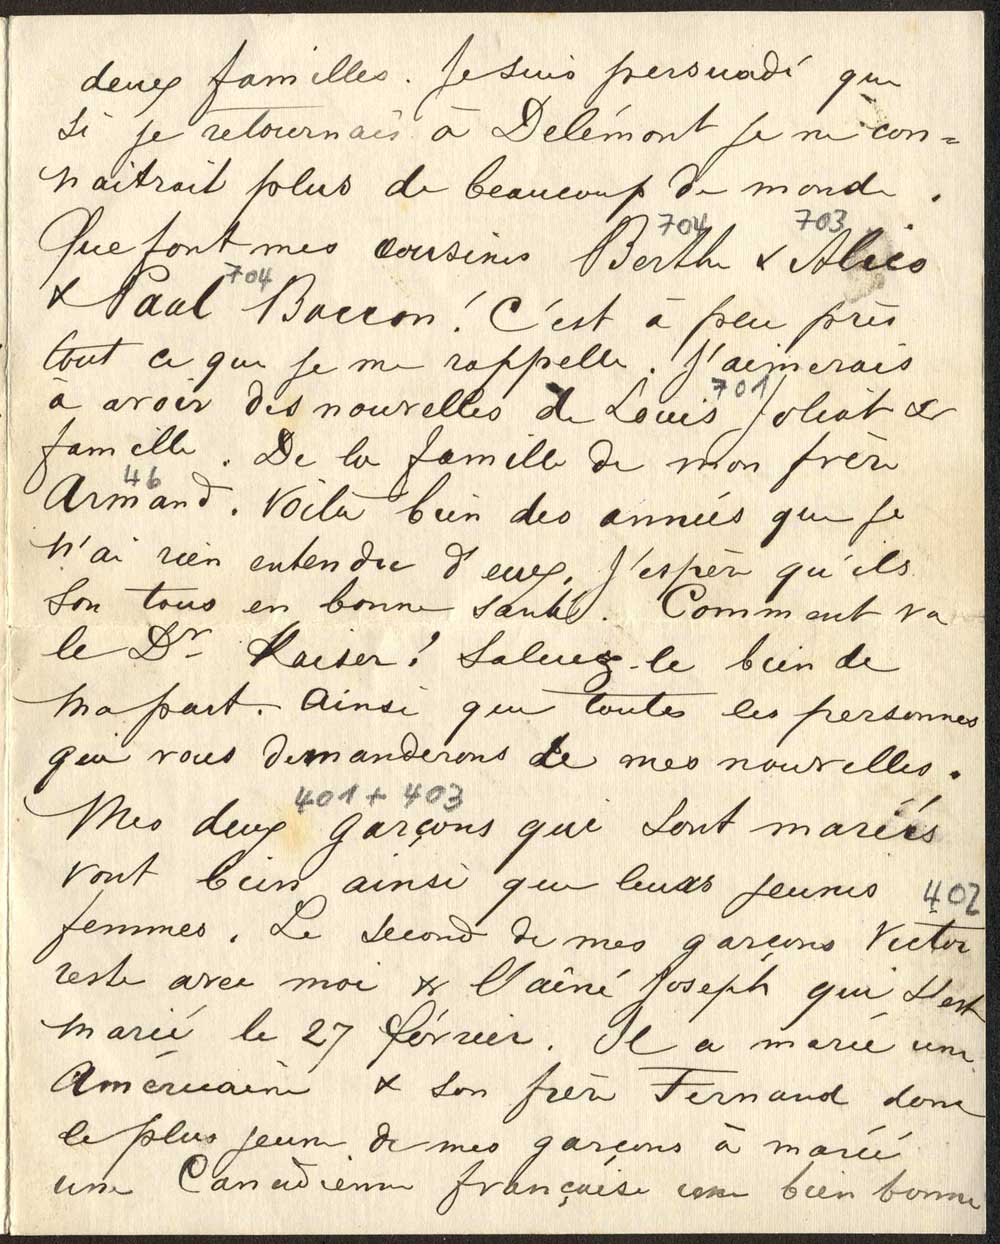 deux familles. Je suis persuadé que
si je retournais à Delémont je ne con=
naitrait plus de beaucoup de monde.
704 703
Que font mes cousines Berthe & Alice
704
& Paul Baccon! C'est à peu près
tout ce que je me rappelle. J'aimerais
701
à avoir des nouvelles de Louis Joliat &
famille. De la famille de mon frère
46
Armand. Voilà bien des années que je
n'ai rien entendu d'eux, J'espère qu'ils
son tous en bonne santé. Comment va
le Dr Kaiser! Saluez-le bien de
ma part. Ainsi que toutes les personnes
qui vous demanderons de mes nouvelles.
401 + 403
Mes deux garçons qui sont mariés
vont bien ainsi que leurs jeunes 402
femmes. Le second de mes garçons Victor
reste avec moi & l'aîné Joseph qui s'est
marié le 27 février. Il a marié une
Américaine & son frère Fernand donc
le plus jeune de mes garçons à marié
une Canadienne française une bien bonne